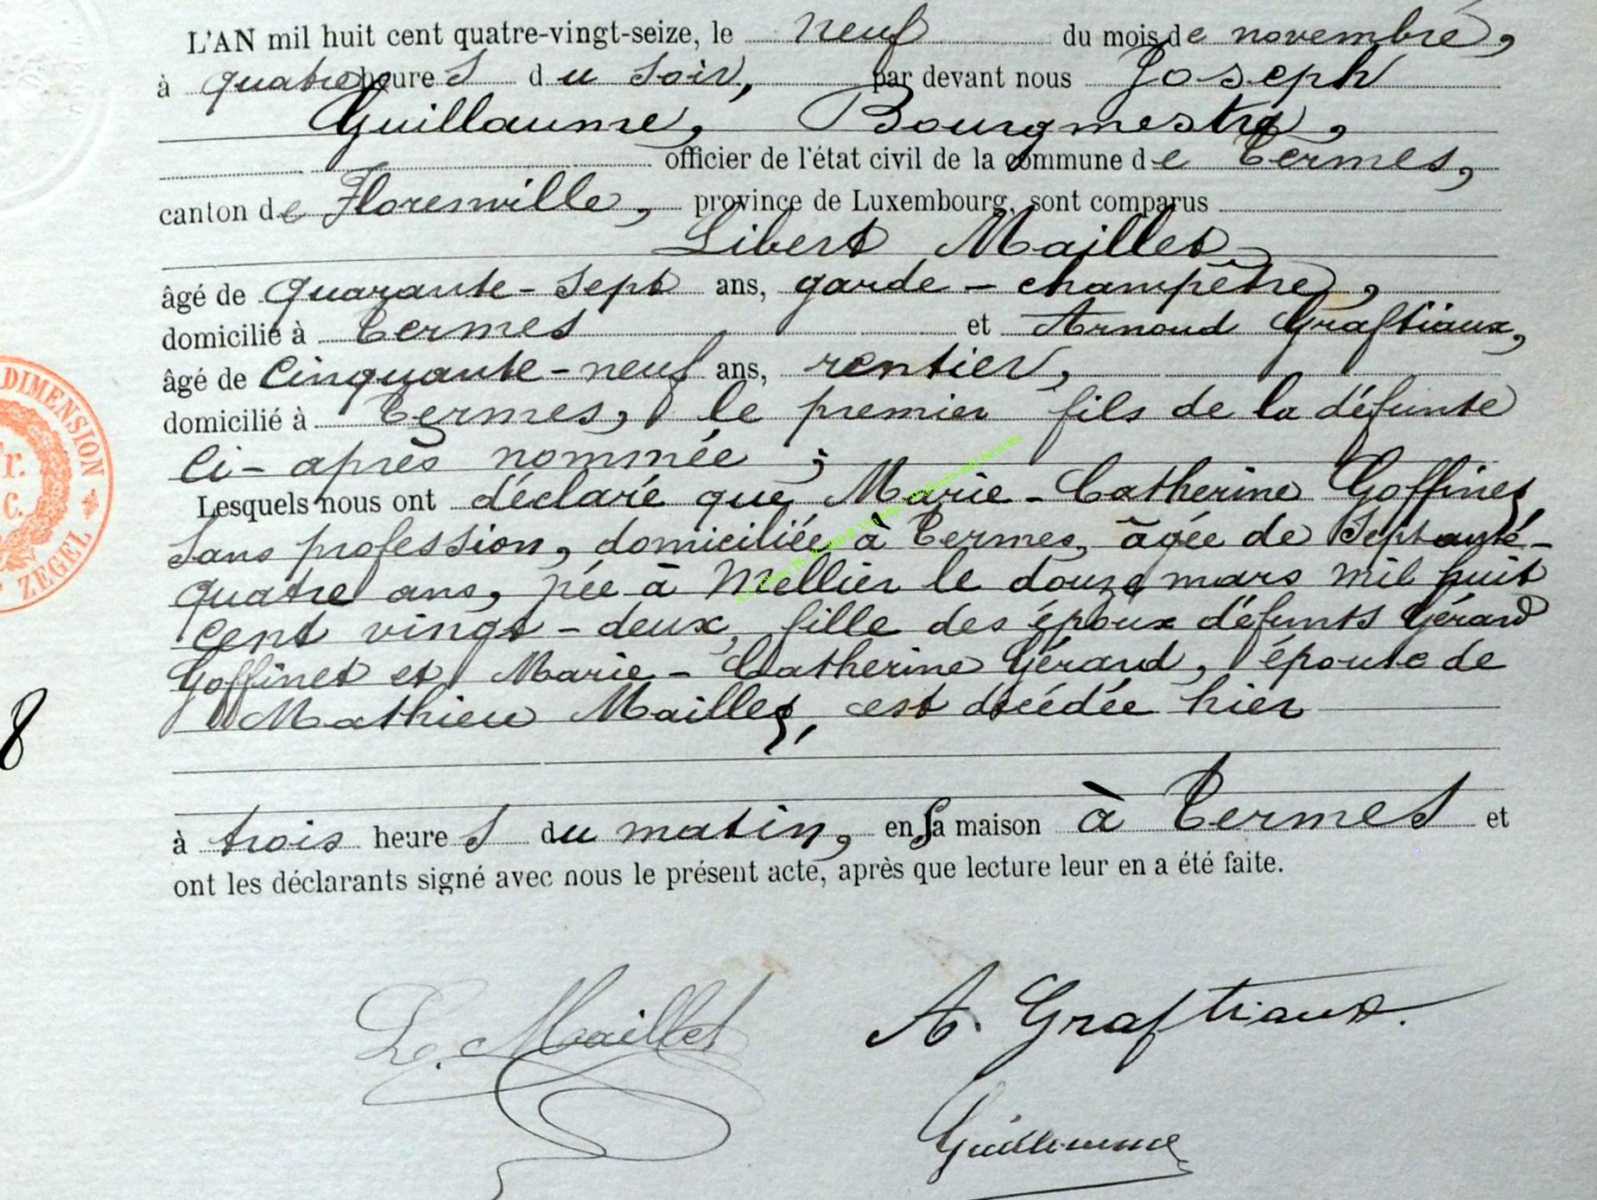 L'AN mil huit cent quatre-vingt-seize, le neuf du mois de novembre,
à quatre heures du soir, par devant nous Joseph
Guillaume, Bourgmestre,
officier de l'état civil de la commune de Termes,
canton de Florenville, province de Luxembourg, sont comparus
Libert Maillet
âgé de quarante-sept ans, garde-champêtre,
domicilié à Termes et Arnoud Graftiaux,
âgé de cinquante-neuf ans, rentier,
domicilié à Termes, le premier fils de la défunte
ci-après nommée ;
Lesquels nous ont déclaré que Marie-Catherine Goffinet,
sans profession, domiciliée à Termes, âgée de septante-
quatre ans, née à Mellier le douze mars mil huit
cent vingt-deux, fille des époux défunts Gérard
Goffinet et Marie-Catherine Gérard, épouse de
Mathieu Maillet, est décédée hier
à trois heures du matin, en sa maison à Termes et
ont les déclarants signé avec nous le présent acte, après que lecture leur en a été faite.
L. Maillet A. Graftiaux.
Guillaume
DIMENSION
Fr.
C.
ZEGEL
8